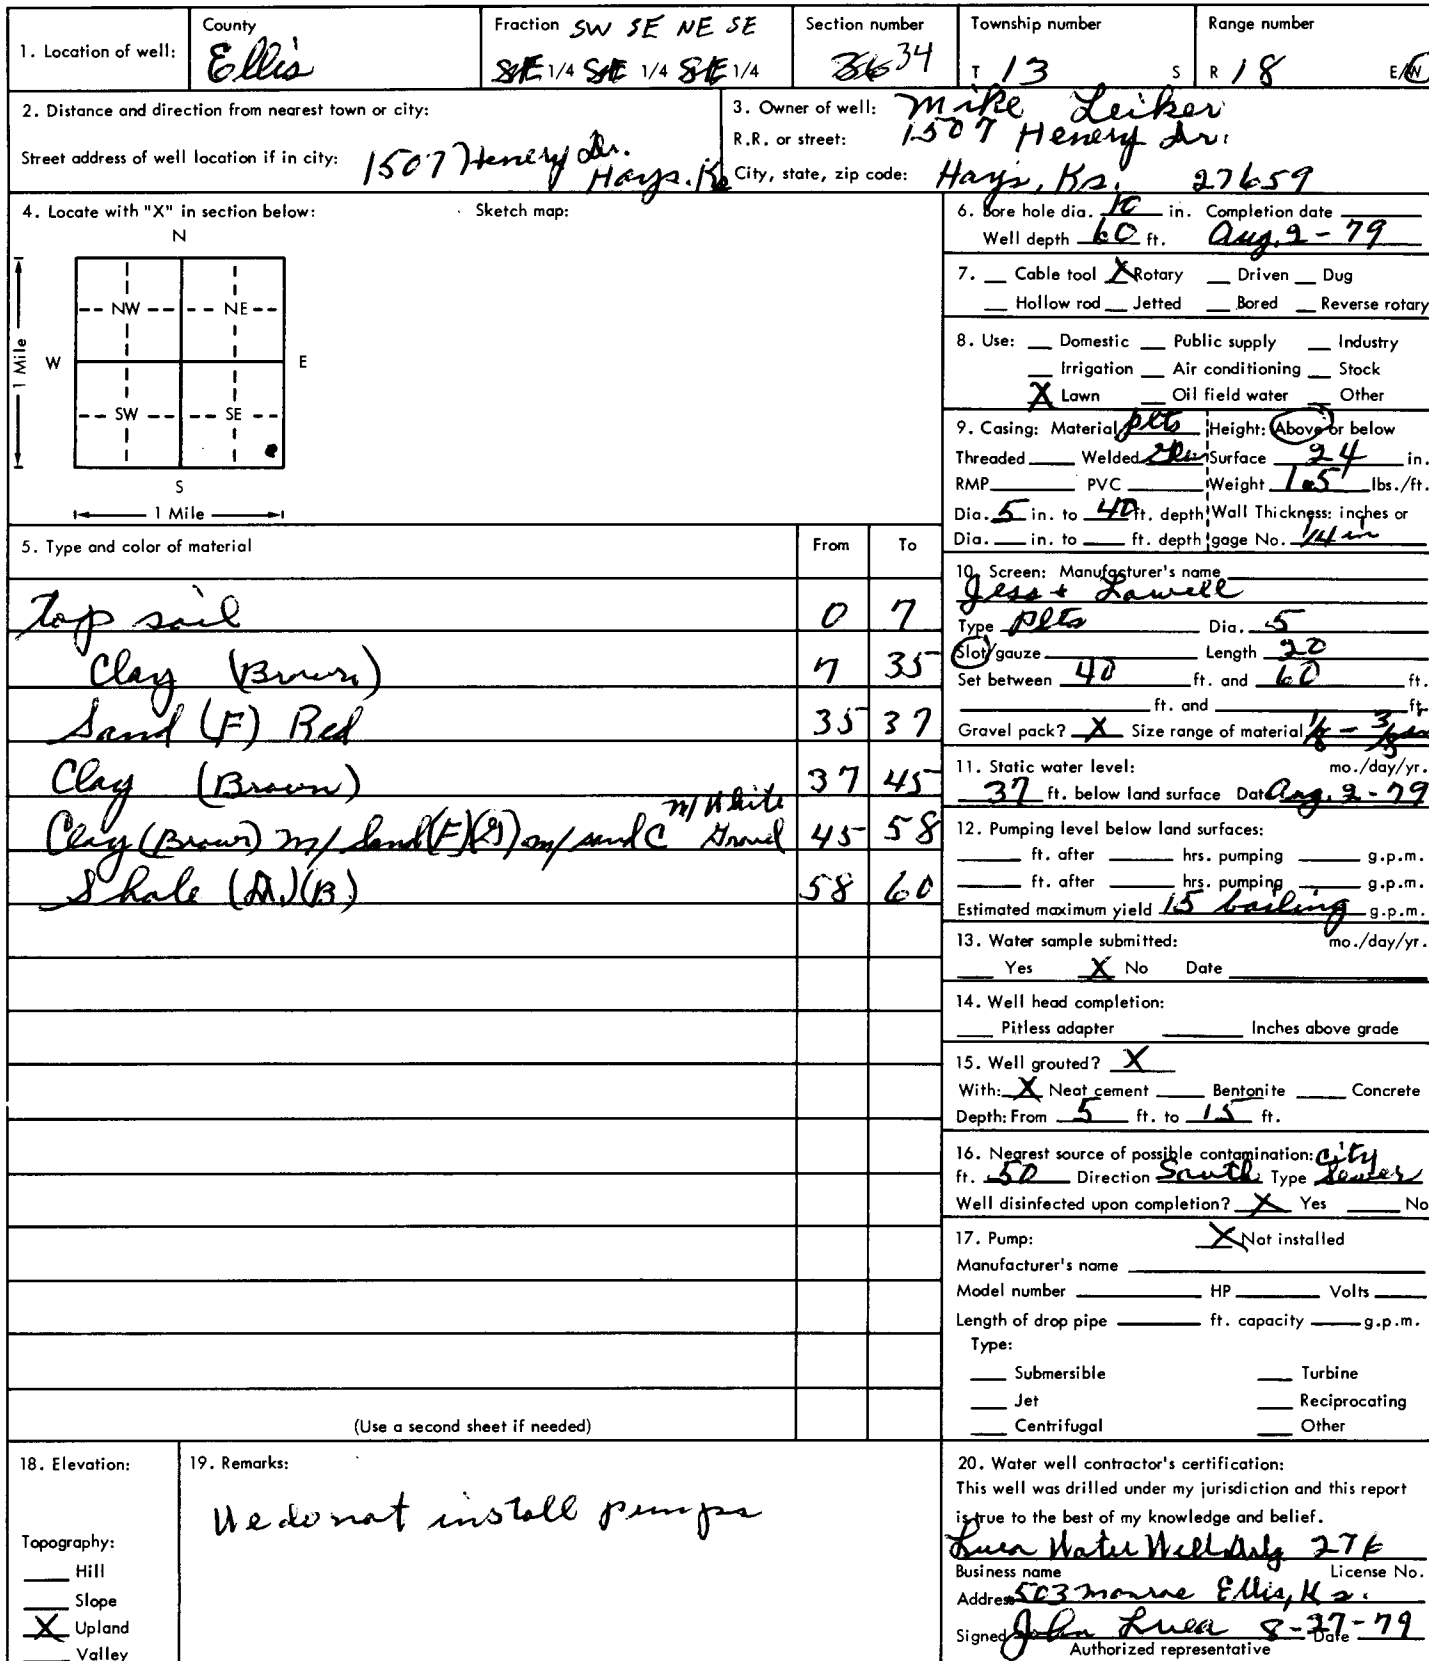 1. Location of well:
County
Ellis
Fraction SW SE NE SE
1/4 1/4 1/4
Section number
34
Township number
T 13 S
Range number
R 18 E/W
2. Distance and direction from nearest town or city:
Street address of well location if in city: 1507 Henery Dr.
Hays. Ks
3. Owner of well: Mike Leiker
R.R. or street: 1507 Henery Dr.
City, state, zip code: Hays, Ks. 27659
4. Locate with "X" in section below:
Sketch map:
N
NW NE
W E
1 Mile
SW SE
S
1 Mile
5. Type and color of material From To
Top soil 0 7
Clay (Brown) 7 35
Sand (F) Red 35 37
Clay (Brown) 37 45
m/ White
Clay (Brown) m/ Sand (F)(G) m/ sand C Gravel 45 58
Shale (B) 58 60
(Use a second sheet if needed)
6. Bore hole dia. 10 in. Completion date
Well depth 60 ft. Aug. 2-79
7. Cable tool X Rotary Driven Dug
Hollow rod Jetted Bored Reverse rotary
8. Use: Domestic Public supply Industry
Irrigation Air conditioning Stock
X Lawn Oil field water Other
9. Casing: Material plts Height: Above or below
Threaded Welded Surface 24 in.
RMP PVC Weight 1.5 lbs./ft.
Dia. 5 in. to 40 ft. depth Wall Thickness: inches or
Dia. in. to ft. depth gage No. 1/4 in
10. Screen: Manufacturer's name
Jess + Lowell
Type plts Dia. 5
Slot/gauze Length 20
Set between 40 ft. and 60 ft.
ft. and ft.
Gravel pack? X Size range of material 1/8 - 3/8
11. Static water level: mo./day/yr.
37 ft. below land surface Date Aug. 2-79
12. Pumping level below land surfaces:
ft. after hrs. pumping g.p.m.
ft. after hrs. pumping g.p.m.
Estimated maximum yield 15 bailing g.p.m.
13. Water sample submitted: mo./day/yr.
Yes X No Date
14. Well head completion:
Pitless adapter Inches above grade
15. Well grouted? X
With: X Neat cement Bentonite Concrete
Depth: From 5 ft. to 15 ft.
16. Nearest source of possible contamination: City
ft. 50 Direction South Type Sewer
Well disinfected upon completion? X Yes No
17. Pump: X Not installed
Manufacturer's name
Model number HP Volts
Length of drop pipe ft. capacity g.p.m.
Type:
Submersible Turbine
Jet Reciprocating
Centrifugal Other
18. Elevation:
Topography:
Hill
Slope
X Upland
Valley
19. Remarks:
We do not install pumps
20. Water well contractor's certification:
This well was drilled under my jurisdiction and this report
is true to the best of my knowledge and belief.
Luea Water Well Drlg
Business name License No.
Address 503 Monroe Ellis, Ks.
Signed John Luea 8-27-79 Date
Authorized representative